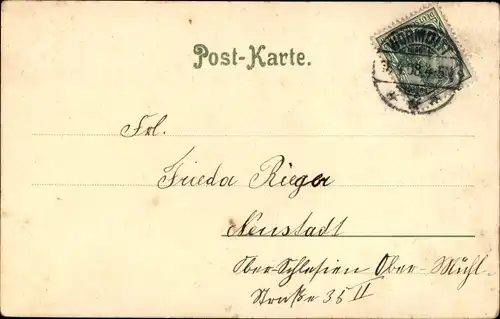 Post-Karte.
Frl.
Frieda Rieger
Neustadt
Ober-Schlesien Ober-Mühl
Straße 35 II